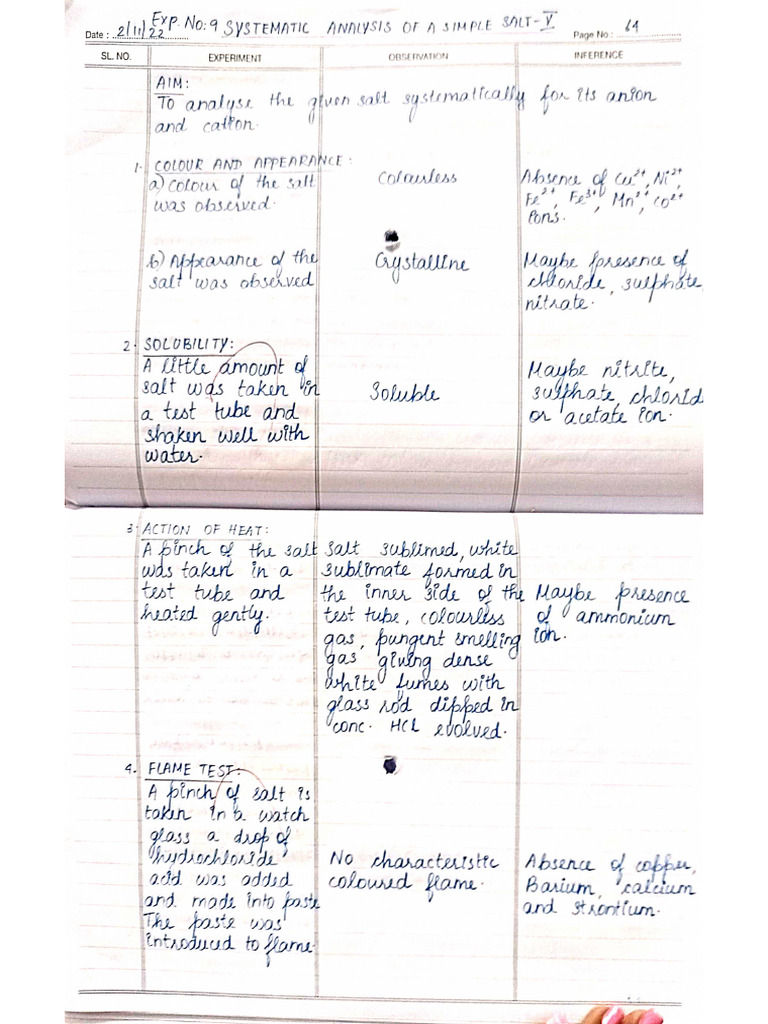 Exp. No: 9 SYSTEMATIC ANALYSIS OF A SIMPLE SALT-V
Date : 2/11/22 Page No : 64
SL. NO. EXPERIMENT OBSERVATION INFERENCE
AIM:
To analyse the given salt systematically for its anion
and cation.
1. COLOUR AND APPEARANCE:
a) Colour of the salt
was observed.
Colourless
Absence of Cu2+, Ni2+,
Fe2+, Fe3+, Mn2+, Co2+
Ions.
b) Appearance of the
salt was observed
Crystalline
Maybe presence of
chloride, sulphate,
nitrate.
2. SOLUBILITY:
A little amount of
salt was taken in
a test tube and
shaken well with
water.
Soluble
Maybe nitrite,
sulphate, chlorid
or acetate ion.
3. ACTION OF HEAT:
A pinch of the salt
was taken in a
test tube and
heated gently.
Salt sublimed, white
sublimate formed in
the inner side of the
test tube, colourless
gas, pungent smelling
gas giving dense
white fumes with
glass rod dipped in
conc. HCL evolved.
Maybe presence
of ammonium
ion.
4. FLAME TEST:
A pinch of salt is
taken in a watch
glass a drop of
hydrochloride
acid was added
and made into paste
The paste was
introduced to flame.
No characteristic
coloured flame.
Absence of copper,
Barium, calcium
and strontium.